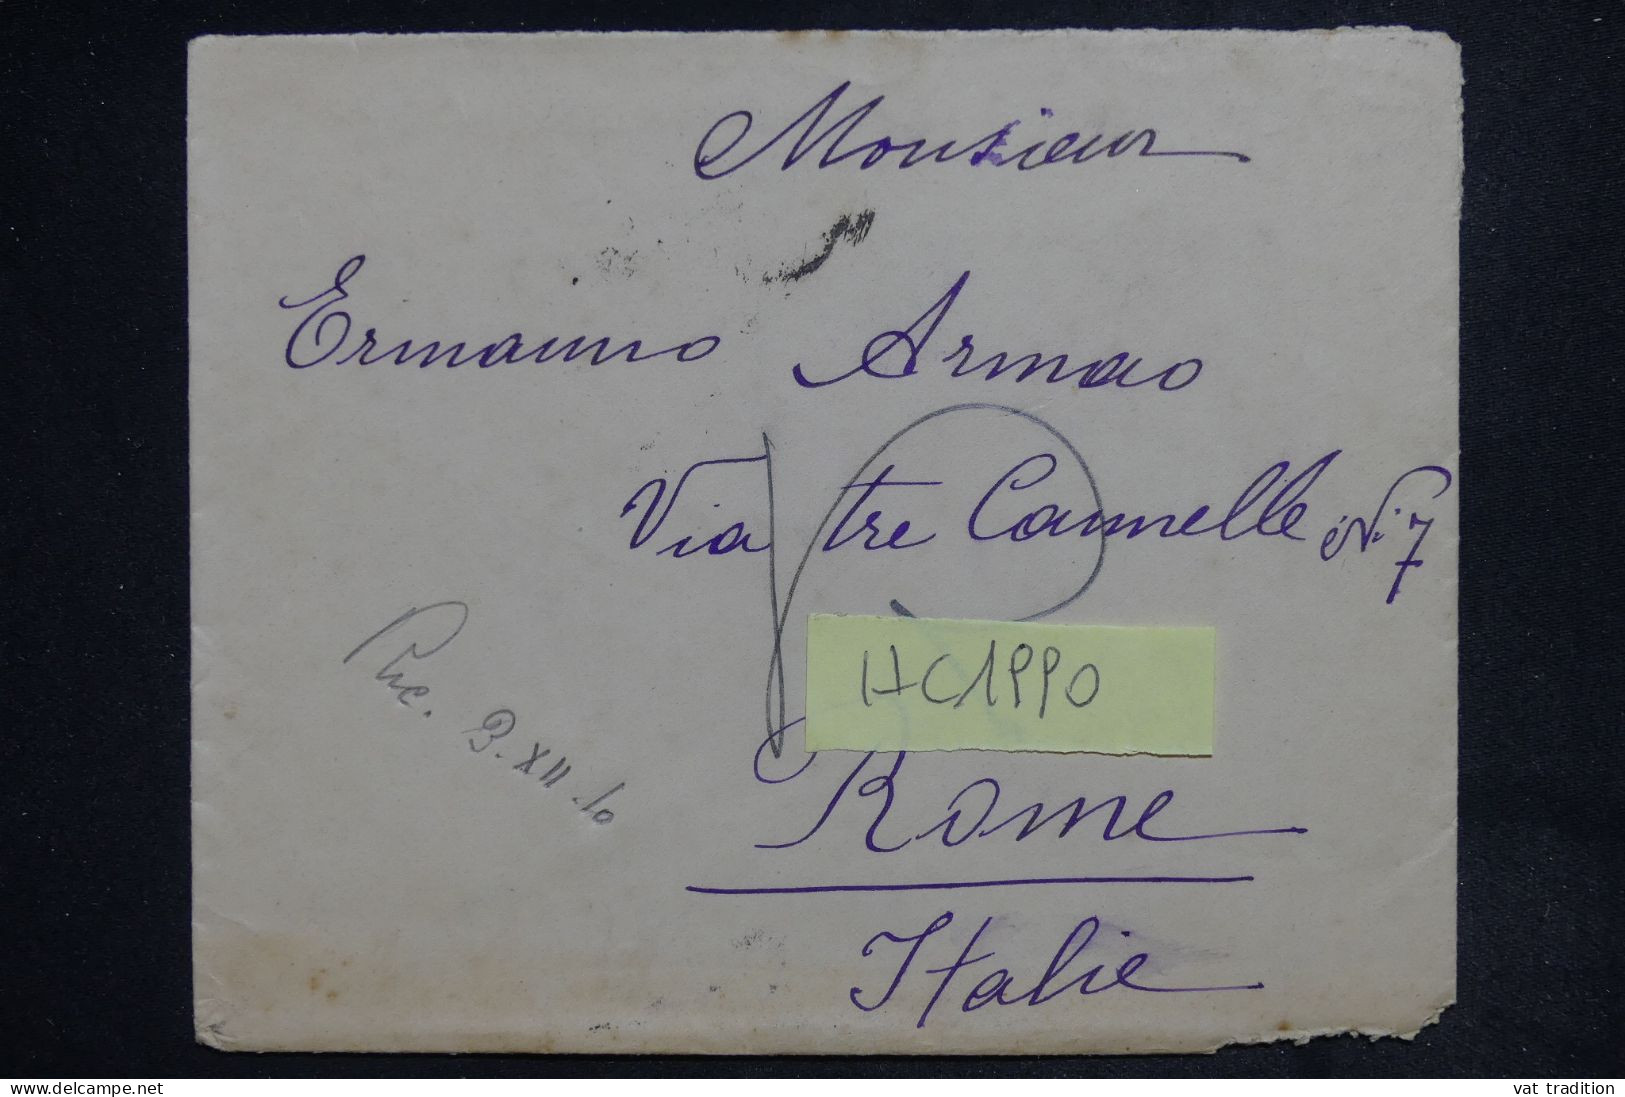 Monsieur
Ermanno Armao
Via tre Cannelle N. 7
HC1990
Rome
Italie
3.XII.10
www.delcampe.net
vat tradition